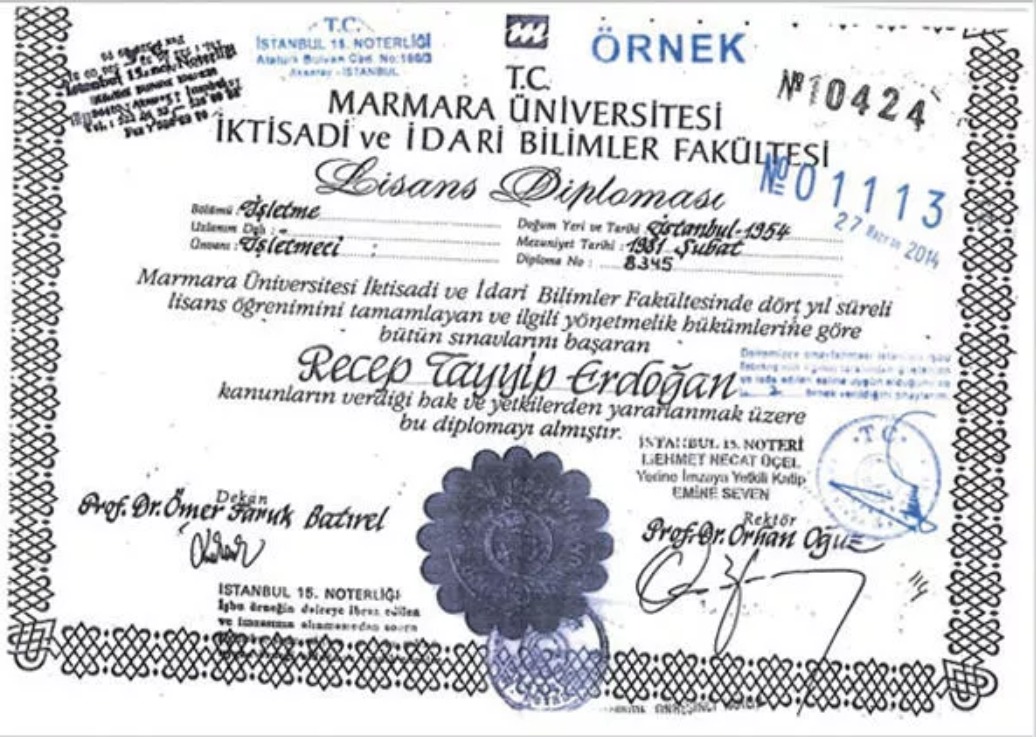 T.C.
İSTANBUL 15. NOTERLİĞİ
Atatürk Bulvarı Cad. No:186/3
Aksaray - İSTANBUL
ÖRNEK
Nº 10424
T.C.
MARMARA ÜNİVERSİTESİ
İKTİSADİ ve İDARİ BİLİMLER FAKÜLTESİ
Lisans Diploması
Nº 01113
27 Haziran 2014
Bölümü : İşletme
Uzlanım Dalı : -
Ünvanı : İşletmeci
Doğum Yeri ve Tarihi : İstanbul-1954
Mezuniyet Tarihi : 1981 Şubat
Diploma No : 8345
Marmara Üniversitesi İktisadi ve İdari Bilimler Fakültesinde dört yıl süreli
lisans öğrenimini tamamlayan ve ilgili yönetmelik hükümlerine göre
bütün sınavlarını başaran
Recep Tayyip Erdoğan
kanunların verdiği hak ve yetkilerden yararlanmak üzere
bu diplomayı almıştır.
İSTANBUL 15. NOTERİ
MEHMET NECAT ÜÇEL
Yerine İmzaya Yetkili Katip
EMİNE SEVEN
T.C.
Dekan
Prof. Dr. Ömer Faruk Batırel
Rektör
Prof. Dr. Orhan Oğuz
İSTANBUL 15. NOTERLİĞİ
İşbu örneğin daireye ibraz edilen